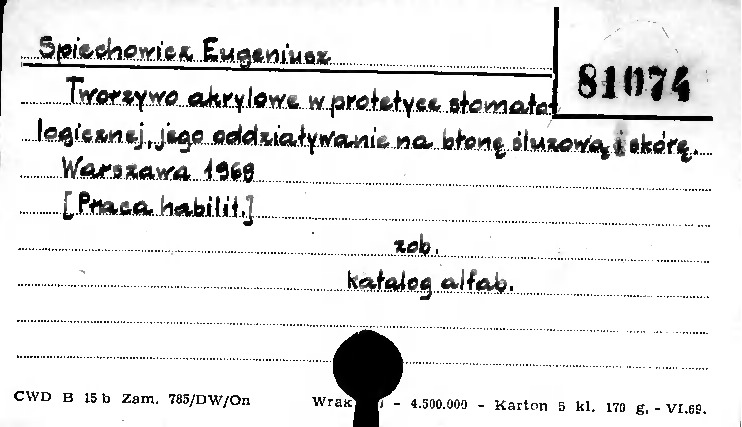 Spiechowicz Eugeniusz
81074
Tworzywo akrylowe w protetyce stomato
logicznej, jego oddziaływanie na błonę śluzową i skórę.
Warszawa 1968
[Praca habilit.]
zob.
katalog alfab.
CWD B 15 b Zam. 785/DW/On - 4.500.000 - Karton 5 kl. 170 g. - VI.69.